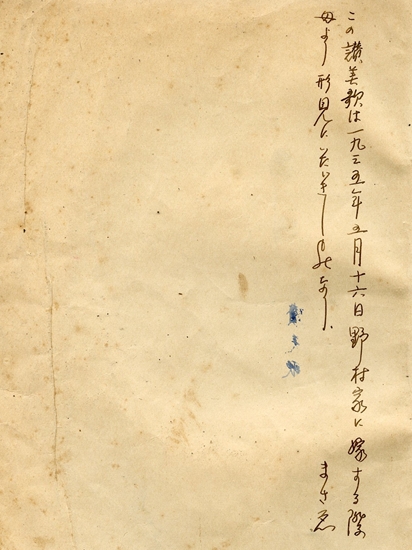 この讃美歌は一九三五年五月十六日野村家に嫁する際
母より形見にいたゞきしものなり、
まさ恵